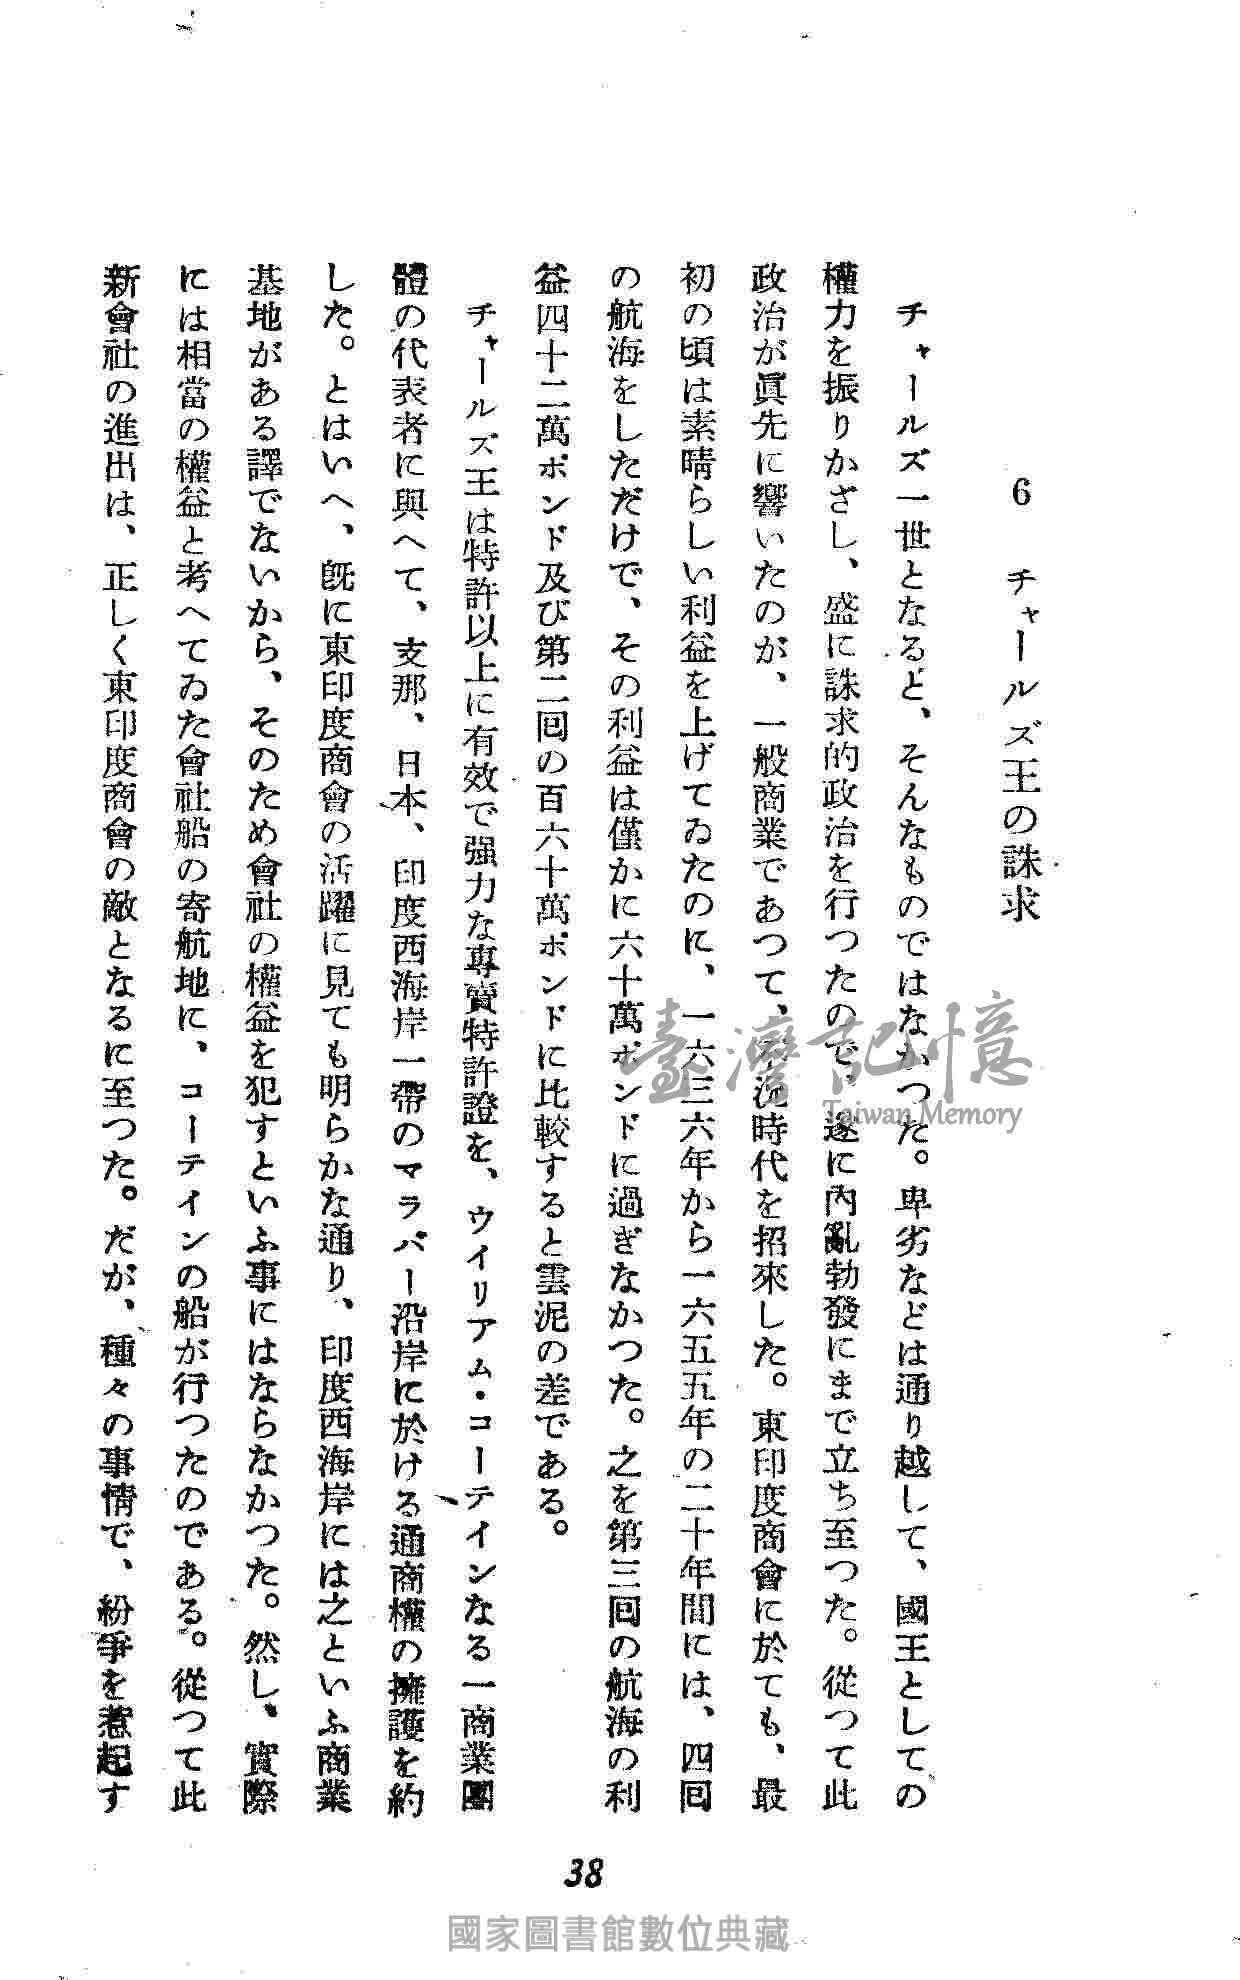 6 チャールズ王の誅求
チャールズ一世となると、そんなものではなかつた。卑劣などは通り越して、國王としての
權力を振りかざし、盛に誅求的政治を行つたので、遂に內亂勃發にまで立ち至つた。從つて此
政治が眞先に響いたのが、一般商業であつて、況時代を招來した。東印度商會に於ても、最
初の頃は素晴らしい利益を上げてゐたのに、一六三六年から一六五五年の二十年間には、四回
の航海をしただけで、その利益は僅かに六十萬ポンドに過ぎなかつた。之を第三回の航海の利
益四十二萬ポンド及び第二回の百六十萬ポンドに比較すると雲泥の差である。
チャールズ王は特許以上に有效で强力な專賣特許證を、ウイリアム・コーテインなる一商業團
體の代表者に與へて、支那、日本、印度西海岸一帶のマラバー沿岸に於ける通商權の擁護を約
した。とはいへ、旣に東印度商會の活躍に見ても明らかな通り、印度西海岸には之といふ商業
基地がある譯でないから、そのため會社の權益を犯すといふ事にはならなかつた。然し、實際
には相當の權益と考へてゐた會社船の寄航地に、コーテインの船が行つたのである。從つて此
新會社の進出は、正しく東印度商會の敵となるに至つた。だが、種々の事情で、紛爭を惹起す
38
臺灣記憶
Taiwan Memory
國家圖書館數位典藏